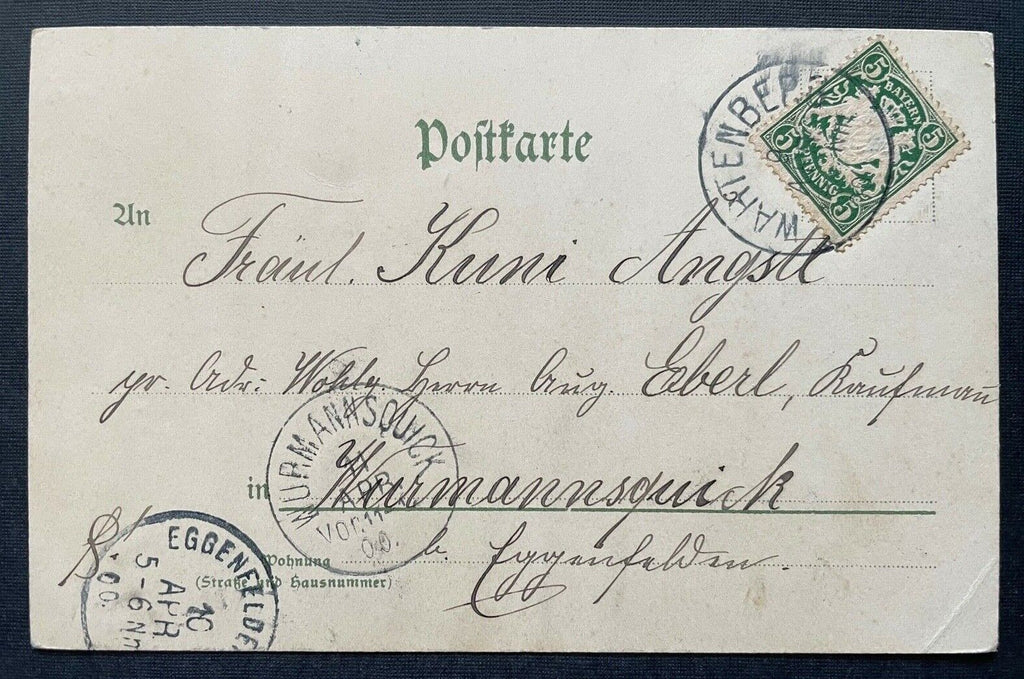 Postkarte
5 BAYERN 5
5 PFENNIG 5
WARTENBERG
An Fräul. Kuni Angstl
pr. Adr: Wohlg Herrn Aug. Eberl, Kaufmann
in Wurmannsquick
b. Eggenfelden.
Wohnung
(Straße und Hausnummer)
WURMANNSQUICK
11
APR
VOR 11-
00.
EGGENFELDEN
10
APR
5-6 NM
00.